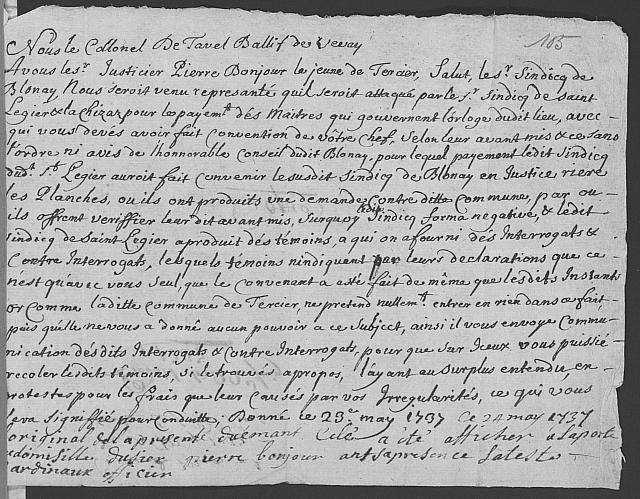 185
Nous le Collonel De Tavel Ballif de Vevay
A vous les.r Justicier Pierre Bonjour le jeune de Tercier, Salut, les.r Sindicq de
Blonay Nous seroit venu represanté quil seroit attaqué par le s.r Sindicq de saint
Legier & la Chizaz pour le payem.t dés Maitres qui gouvernent l'orloge dudit lieu, avec
qui vous devés avoir fait Convention de vôtre Chef, Selon leur avant mis & ce sans
l'ordre ni avis de l'honnorable Conseil dudit Blonay, pour lequel payement ledit Sindicq
dud.t S.t Legier auroit fait Convenir le susdit Sindicq de Blonay en Justice riere
les Planches, ou ils ont produits une demande Contre ditte Commune, par ou
ils offrent veriffier leur dit avant mis, Surquoy ledit Sindicq forma negative, & ledit
Sindicq de Saint Legier a produit dés témoins, a qui on a fourni dés Interrogats &
Contre Interrogats, lesquels témoins n'indiquent par leurs declarations que ce
n'est qu'avec vous seul, que le convenant a été fait de même que lesdits Instants
or Comme laditte Commune de Tercier, ne pretend nullem.t entrer en rien dans ce fait
puis qu'elle ne vous a donné aucun pouvoir a ce Subject, ainsi il vous envoye Commu-
nication désdits Interrogats & Contre Interrogats, pour que sur Iceux vous puissié-
recoler lesdits témoins, si le trouvés a propos, l'ayant au surplus entendu, en-
protestes pour les frais que leur Causés par vos Irregularités, ce qui vous
sera signiffié pour conduitte; Donné le 23.e may 1737 Ce 24 may 1737
original de la presente a été afficher a la porte
domisille du sier pierre bonjour ant sa presence Lateste
ardinaux officier